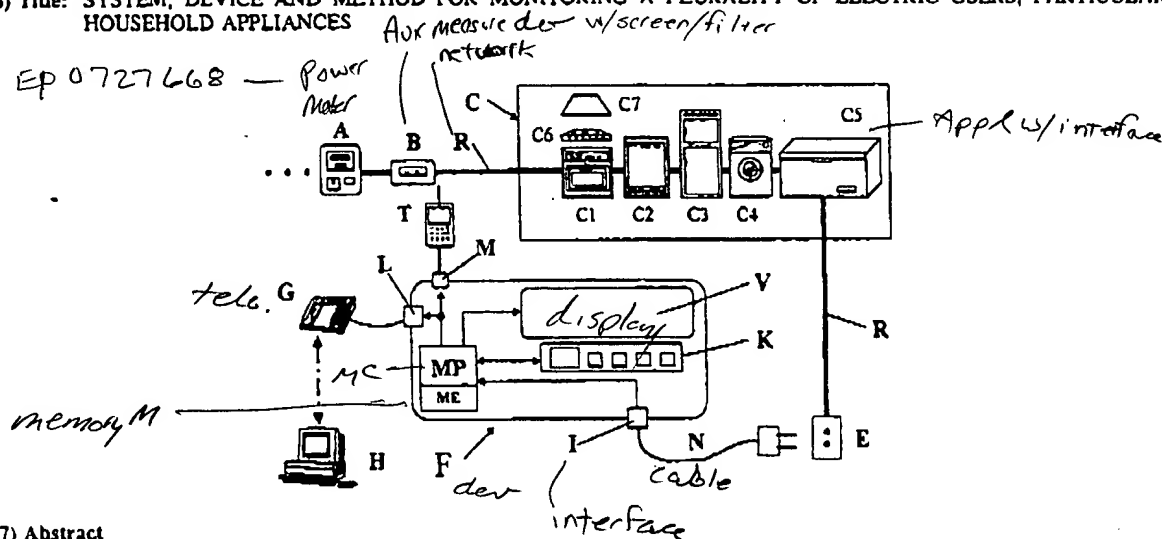 Title: SYSTEM, DEVICE AND METHOD FOR MONITORING A PLURALITY OF ELECTRIC USERS,
HOUSEHOLD APPLIANCES
Aux measure dev w/screen/filter
network
EP 0727668 — Power
Meter
A B R C C7 C6 C5 Appl w/interface
C1 C2 C3 C4
T
M
L V
tele. G display
R
K
MC MP
ME
memory M
I N E
H F cable
dev
interface
7) Abstract